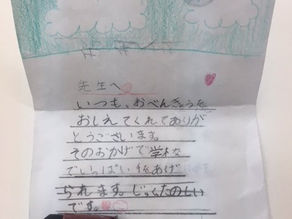 先生へ
いつも、おべんきょうを
おしえてくれてありが
とうございます。
そのおかげで学校
でいっぱい手をあげ
られます。じゅくたのしい
です。